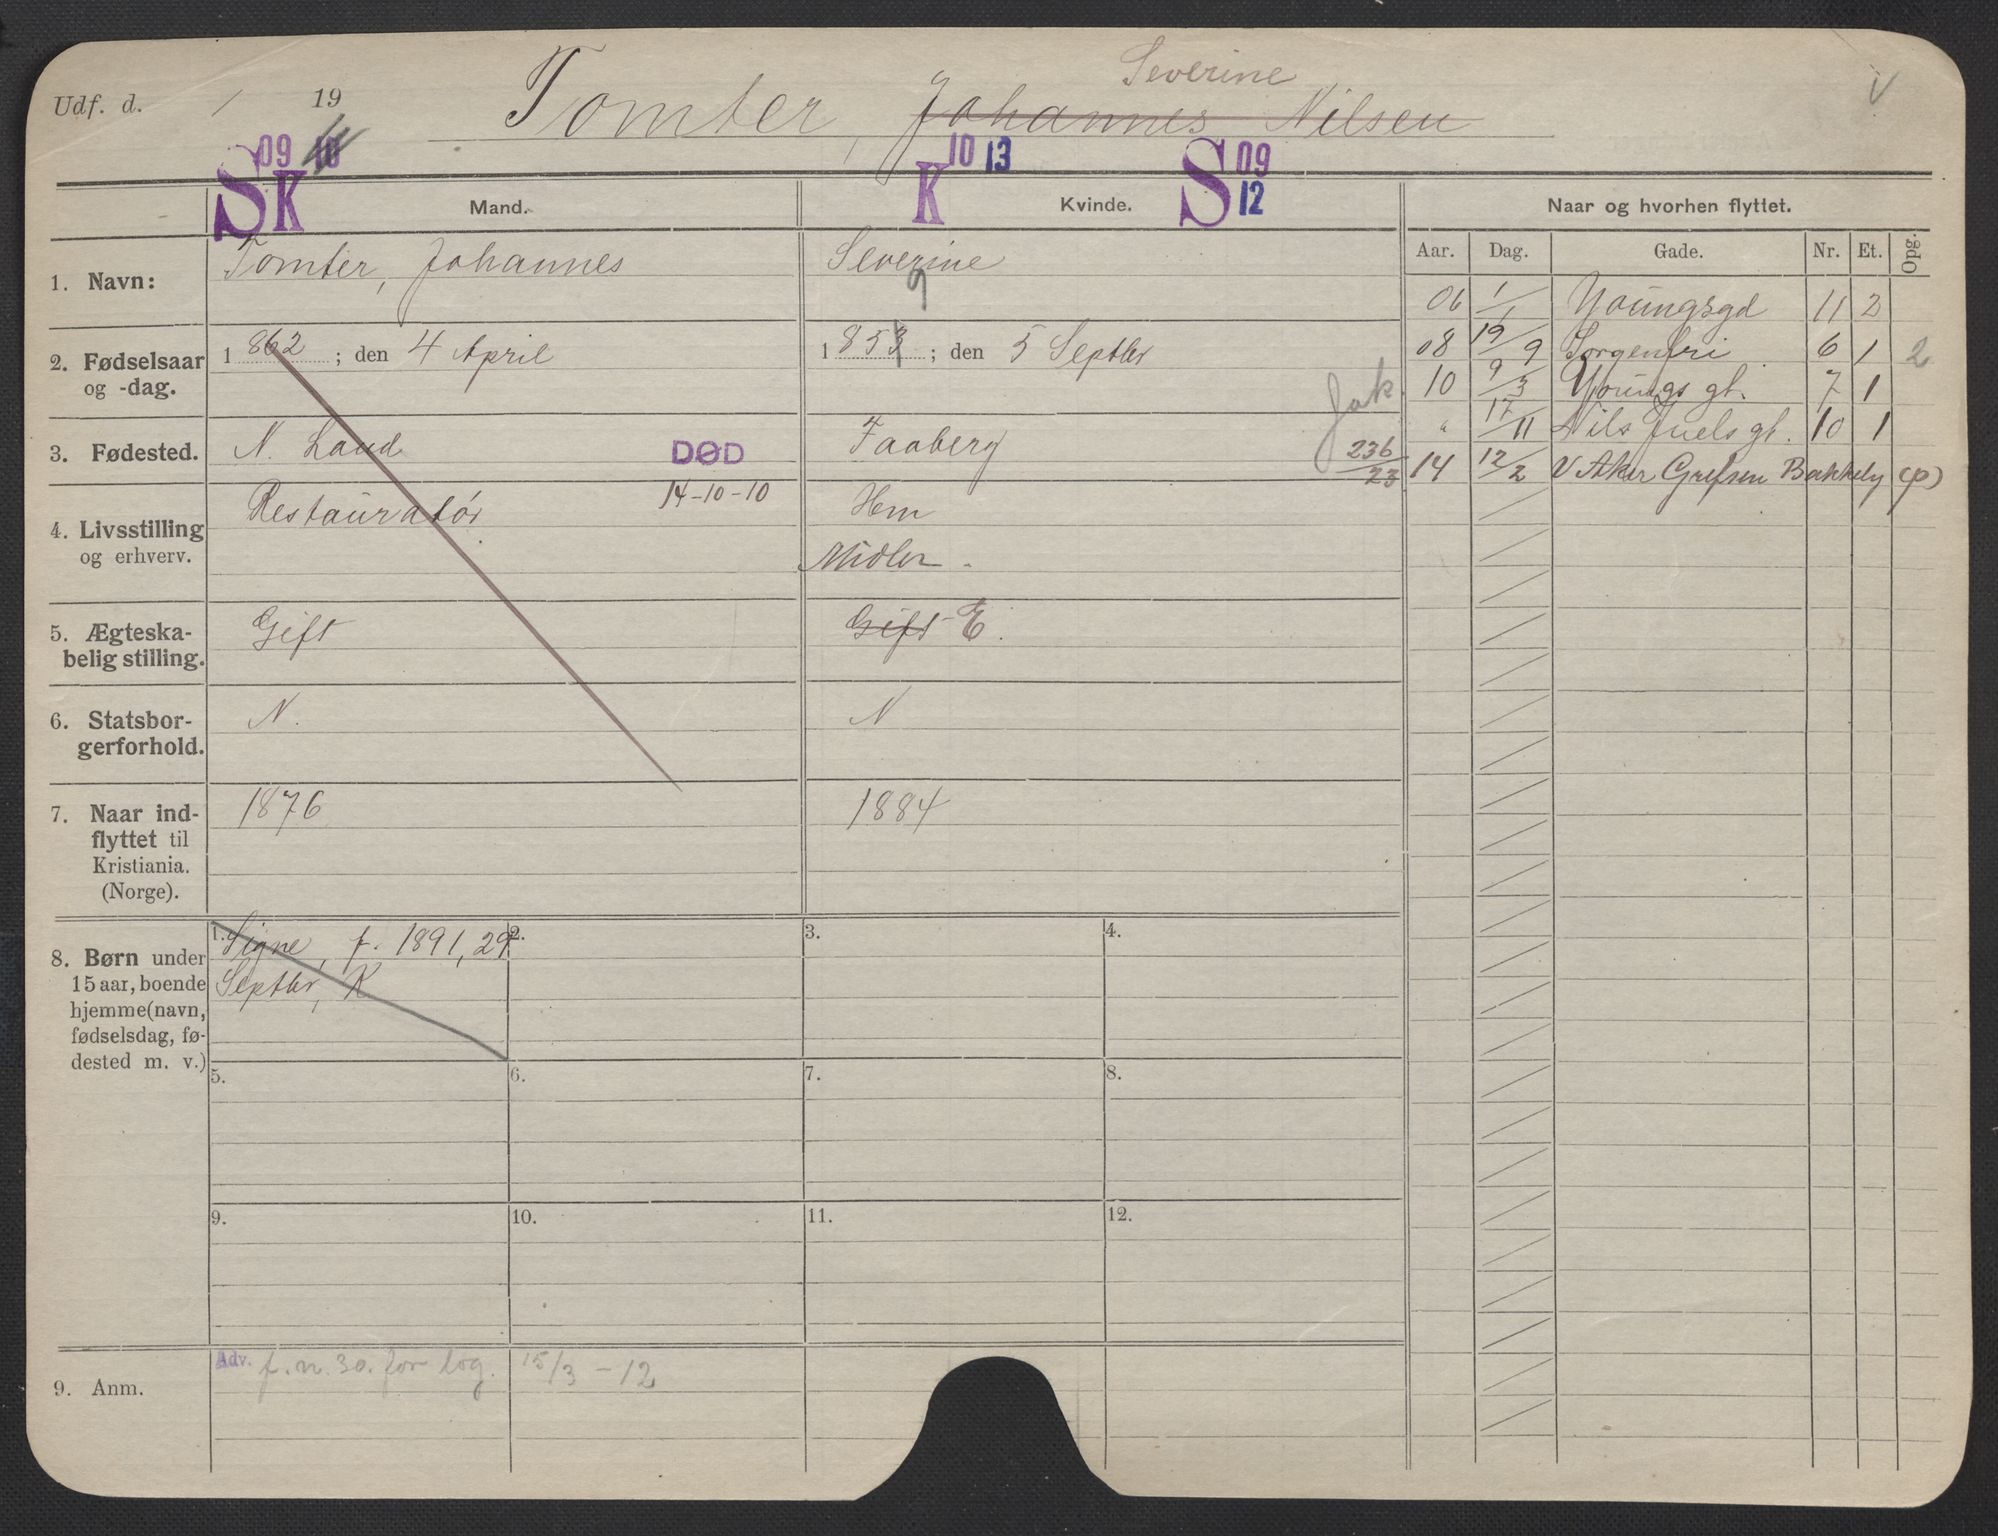 Udf. d. / 19
Tomter, Johannes Nilsen
Severine
V
S 09 K 10
K 10 13
S 09 12
Mand.
Kvinde.
Naar og hvorhen flyttet.
Aar. Dag. Gade. Nr. Et. Opg.
1. Navn:
Tomter, Johannes
Severine
9
06 1/1 Youngsgd 11 2
08 19/9 Sorgenfri 6 1 2
10 9/3 Youngs gt. 7 1
" 17/11 Nils Juels gt. 10 1
14 12/2 V Aker Grefsen Bakkely (p)
2. Fødselsaar og -dag.
1862; den 4 April
1853; den 5 Septbr
3. Fødested.
N. Land
DØD
14-10-10
Faaberg
236/23
4. Livsstilling og erhverv.
Restauratør
Hem
Midler.
5. Ægteska-
belig stilling.
Gift
Gift E.
6. Statsbor-
gerforhold.
N.
N
7. Naar ind-
flyttet til
Kristiania.
(Norge).
1876
1884
8. Børn under
15 aar, boende
hjemme (navn,
fødselsdag, fø-
dested m. v.)
1. 2. 3. 4.
Signe, f. 1891, 29
Septbr, K
5. 6. 7. 8.
9. 10. 11. 12.
9. Anm.
Adv. f. n. 30. for log. 15/3 - 12